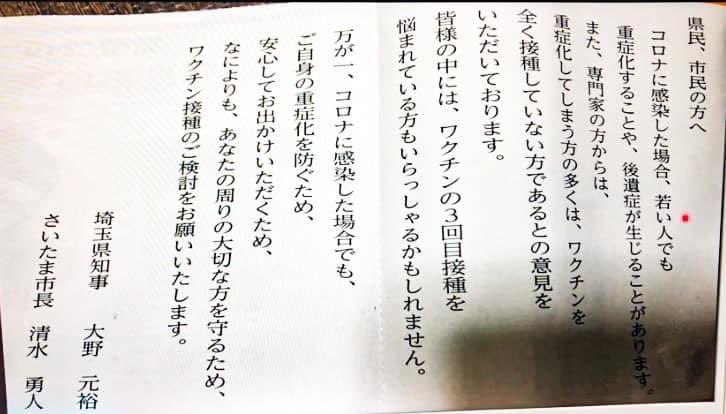 県民、市民の方へ
コロナに感染した場合、若い人でも
重症化することや、後遺症が生じることがあります。
また、専門家の方からは、
重症化してしまう方の多くは、ワクチンを
全く接種していない方であるとの意見を
いただいております。
皆様の中には、ワクチンの3回目接種を
悩まれている方もいらっしゃるかもしれません。
万が一、コロナに感染した場合でも、
ご自身の重症化を防ぐため、
安心してお出かけいただくため、
なによりも、あなたの周りの大切な方を守るため、
ワクチン接種のご検討をお願いいたします。
埼玉県知事 大野 元裕
さいたま市長 清水 勇人